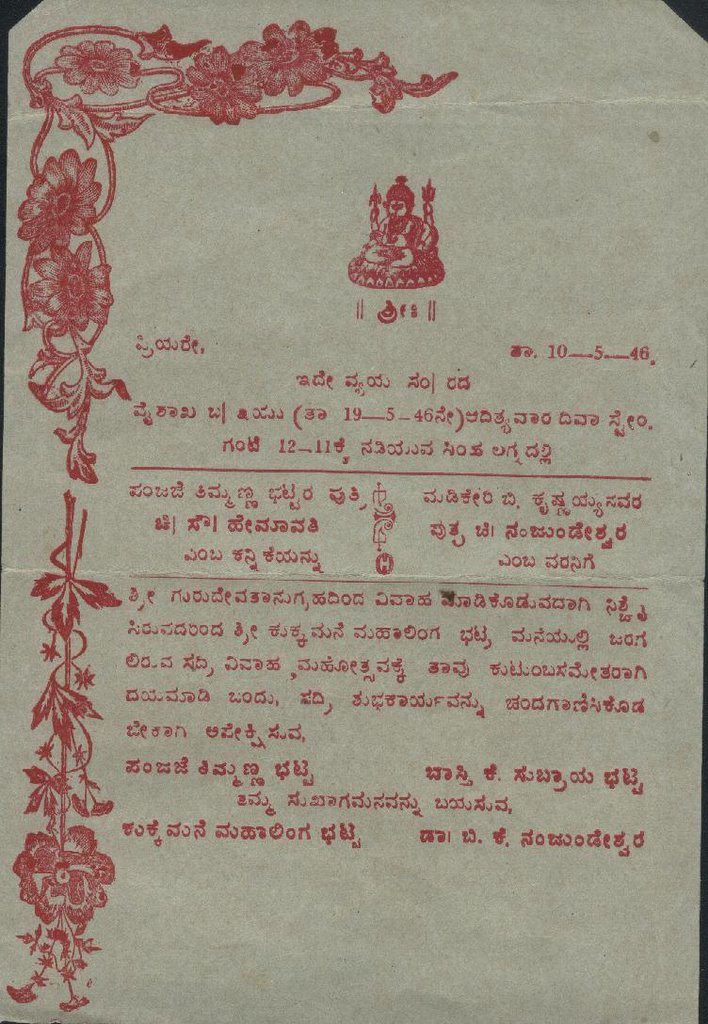 ॥ ಶ್ರೀಃ ॥
ಪ್ರಿಯರೇ,
ತಾ. 10—5—46.
ಇದೇ ವ್ಯಯ ಸಂ| ರದ
ವೈಶಾಖ ಬ| ೩ಯು (ತಾ 19—5-46ನೇ) ಆದಿತ್ಯವಾರ ದಿವಾ ಸ್ಟೇಂ.
ಗಂಟೆ 12-11ಕ್ಕೆ ನಡಿಯುವ ಸಿಂಹ ಲಗ್ನದಲ್ಲಿ
ಪಂಜಜೆ ತಿಮ್ಮಣ್ಣ ಭಟ್ಟರ ಪುತ್ರಿ
ಚಿ| ಸೌ| ಹೇಮಾವತಿ
ಎಂಬ ಕನ್ನಿಕೆಯನ್ನು
ಮಡಿಕೇರಿ ಬಿ. ಕೃಷ್ಣಯ್ಯನವರ
ಪುತ್ರ ಚಿ| ನಂಜುಂಡೇಶ್ವರ
ಎಂಬ ವರನಿಗೆ
ಶ್ರೀ ಗುರುದೇವತಾನುಗ್ರಹದಿಂದ ವಿವಾಹ ಮಾಡಿಕೊಡುವದಾಗಿ ನಿಶ್ಚೈ
ಸಿರುವದರಿಂದ ಶ್ರೀ ಕುಕ್ಕೆಮನೆ ಮಹಾಲಿಂಗ ಭಟ್ರ ಮನೆಯಲ್ಲಿ ಜರಗ
ಲಿರುವ ಸದ್ರಿ ವಿವಾಹ ಮಹೋತ್ಸವಕ್ಕೆ ತಾವು ಕುಟುಂಬಸಮೇತರಾಗಿ
ದಯಮಾಡಿ ಬಂದು, ಸದ್ರಿ ಶುಭಕಾರ್ಯವನ್ನು ಚಂದಗಾಣಿಸಿಕೊಡ
ಬೇಕಾಗಿ ಅಪೇಕ್ಷಿಸುವ,
ಪಂಜಜೆ ತಿಮ್ಮಣ್ಣ ಭಟ್ಟ
ಬಾಸ್ತಿ ಕೆ. ಸುಬ್ರಾಯ ಭಟ್ಟ
ತಮ್ಮ ಸುಖಾಗಮನವನ್ನು ಬಯಸುವ,
ಕುಕ್ಕೆಮನೆ ಮಹಾಲಿಂಗ ಭಟ್ಟ
ಡಾ| ಬಿ. ಕೆ. ನಂಜುಂಡೇಶ್ವರ